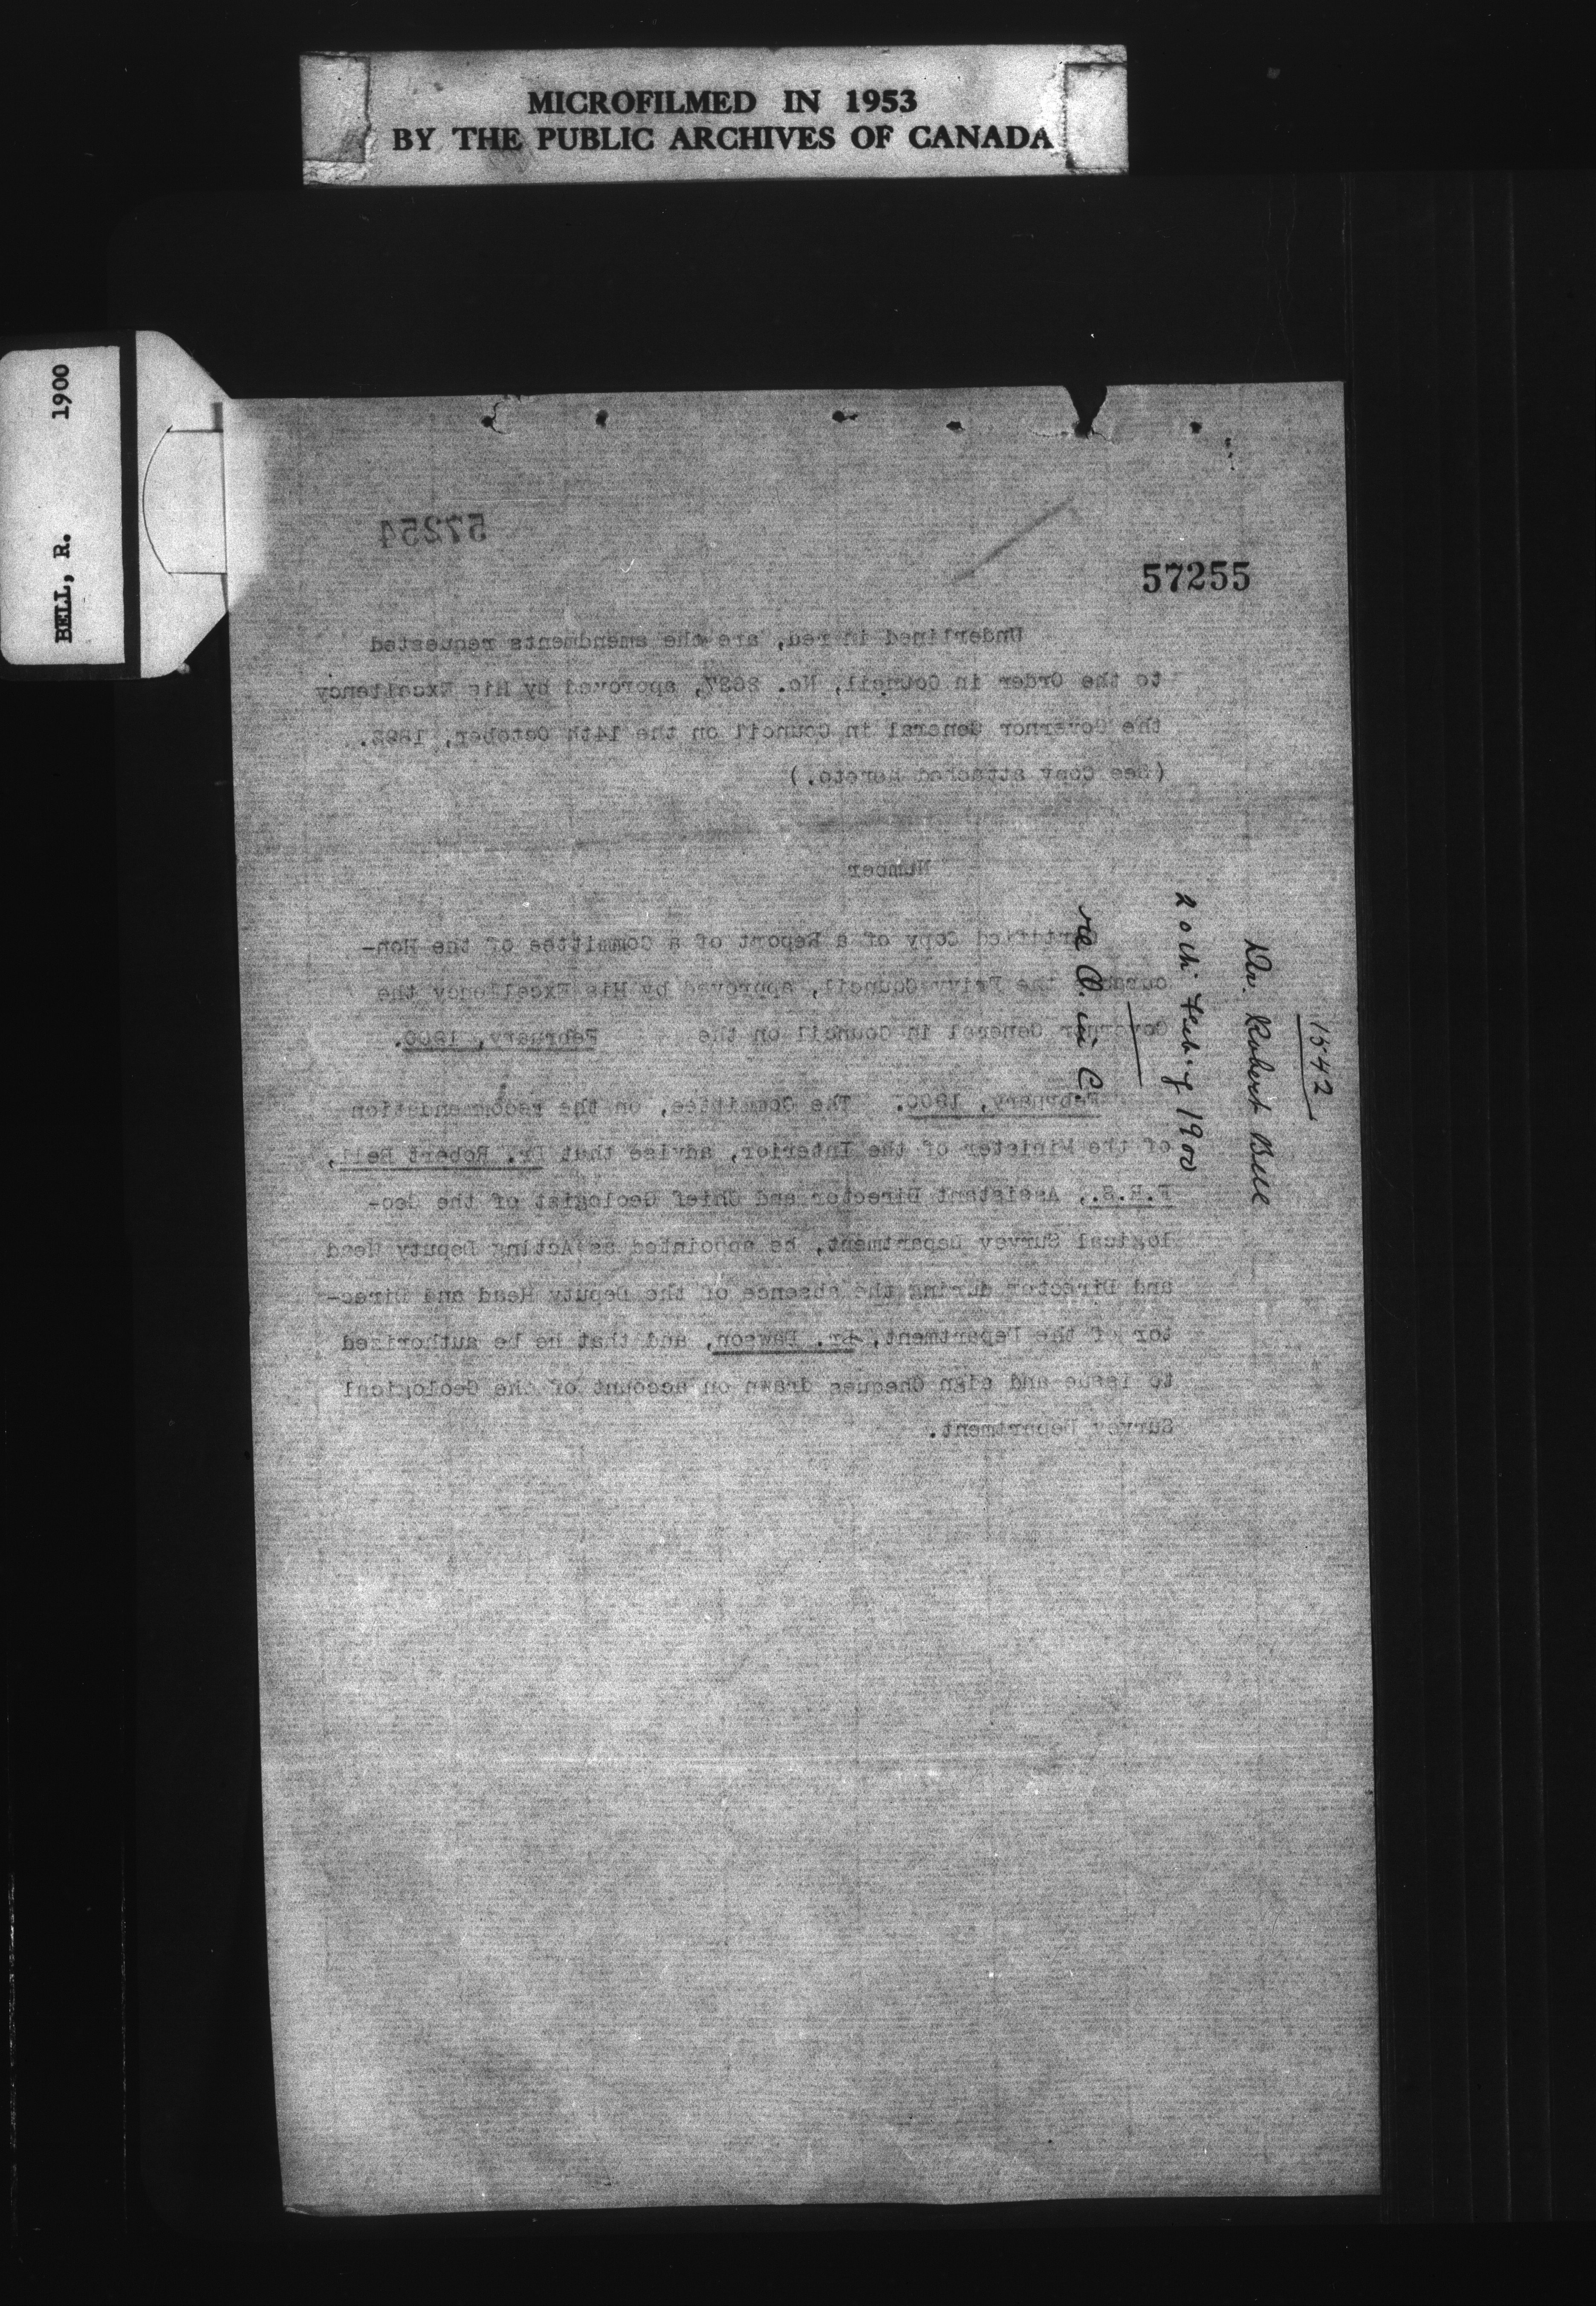 MICROFILMED IN 1953
BY THE PUBLIC ARCHIVES OF CANADA
BELL, R. 1900
57254
57255
Underlined in red, are the amendments requested
to the Order in Council, No. approved by His Excellency
the Governor General in Council on the 14th October, 1892.
(See Copy attached Hereto.)
Number
Certified Copy of a Report of a Committee of the Hon-
the Privy Council, approved by His Excellency the
Governor General in Council on the February, 1900.
February, 1900. The Committee, on the recommendation
of the Minister of the Interior, advise that Dr. Robert Bell,
F.R.S., Assistant Director and Chief Geologist of the Geo-
logical Survey Department, be appointed as Acting Deputy Head
and Director during the absence of the Deputy Head and Direc-
tor of the Department, Dr. Dawson, and that he be authorized
to issue and sign Cheques drawn on account of the Geological
Survey Department.
1542
Dr. Robert Bell
20th Feb'y 1900
re O. in C.